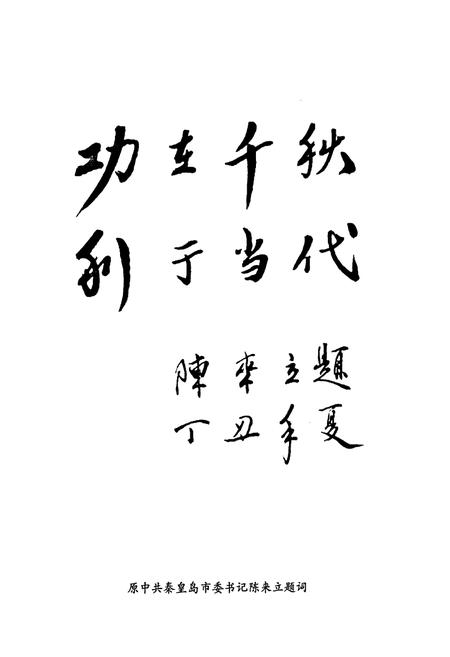 功在千秋
利于当代
陳來立題
丁丑年夏
原中共秦皇岛市委书记陈来立题词